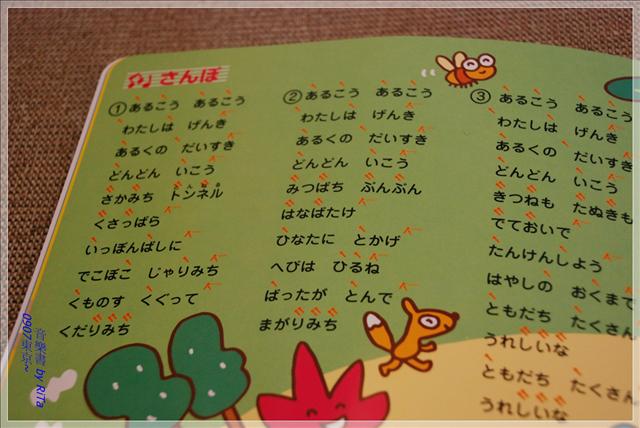 さんぽ
①あるこう あるこう
わたしは げんき
あるくの だいすき
どんどん いこう
さかみち トンネル
くさっぱら
いっぽんばしに
でこぼこ じゃりみち
くものす くぐって
くだりみち
②あるこう あるこう
わたしは げんき
あるくの だいすき
どんどん いこう
みつばち ぶんぶん
はなばたけ
ひなたに とかげ
へびは ひるね
ばったが とんで
まがりみち
③あるこう あるこう
わたしは げんき
あるくの だいすき
どんどん いこう
きつねも たぬきも
でておいで
たんけんしよう
はやしの おくまで
ともだち たくさん
うれしいな
ともだち たくさん
うれしいな
音樂書 by RiTa
0907東京~